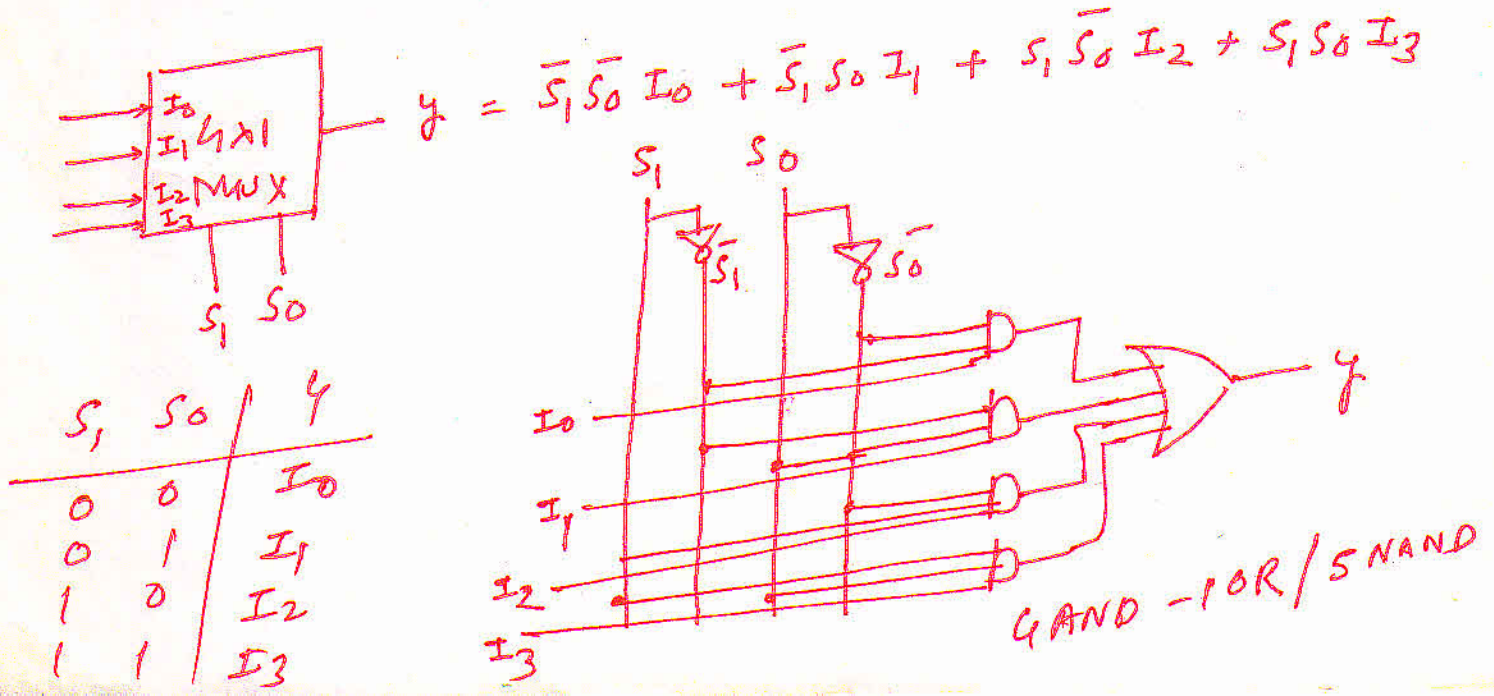 I0
I1 4X1
I2 MUX
I3
S1 S0
y = S̅1 S̅0 I0 + S̅1 S0 I1 + S1 S̅0 I2 + S1 S0 I3
S1 S0 y
0 0 I0
0 1 I1
1 0 I2
1 1 I3
S1 S0
S̅1 S̅0
I0
I1
I2
I3
y
4 AND - 1 OR / 5 NAND